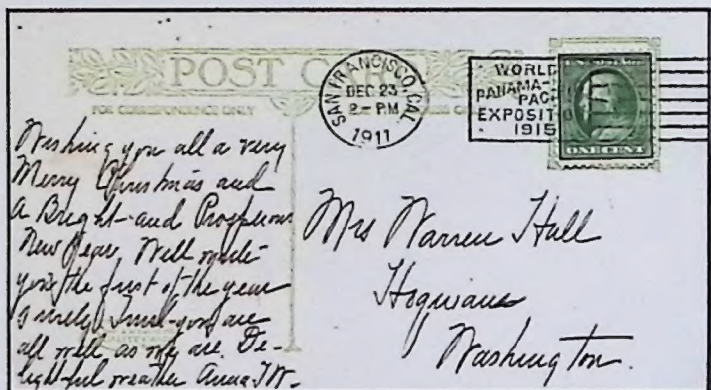 POST CARD
FOR CORRESPONDENCE ONLY
SAN FRANCISCO, CAL.
DEC 23
2 - PM
1911
WORLD
PANAMA-
PACI
EXPOSIT
1915
ONE CENT
Wishing you all a very
Merry Christmas and
a Bright and Prosperous
New Year. Will write
you the first of the year
surely. Trust you are
all well as we are. De-
lightful weather Anna
Mrs Warren Hall
Washington.